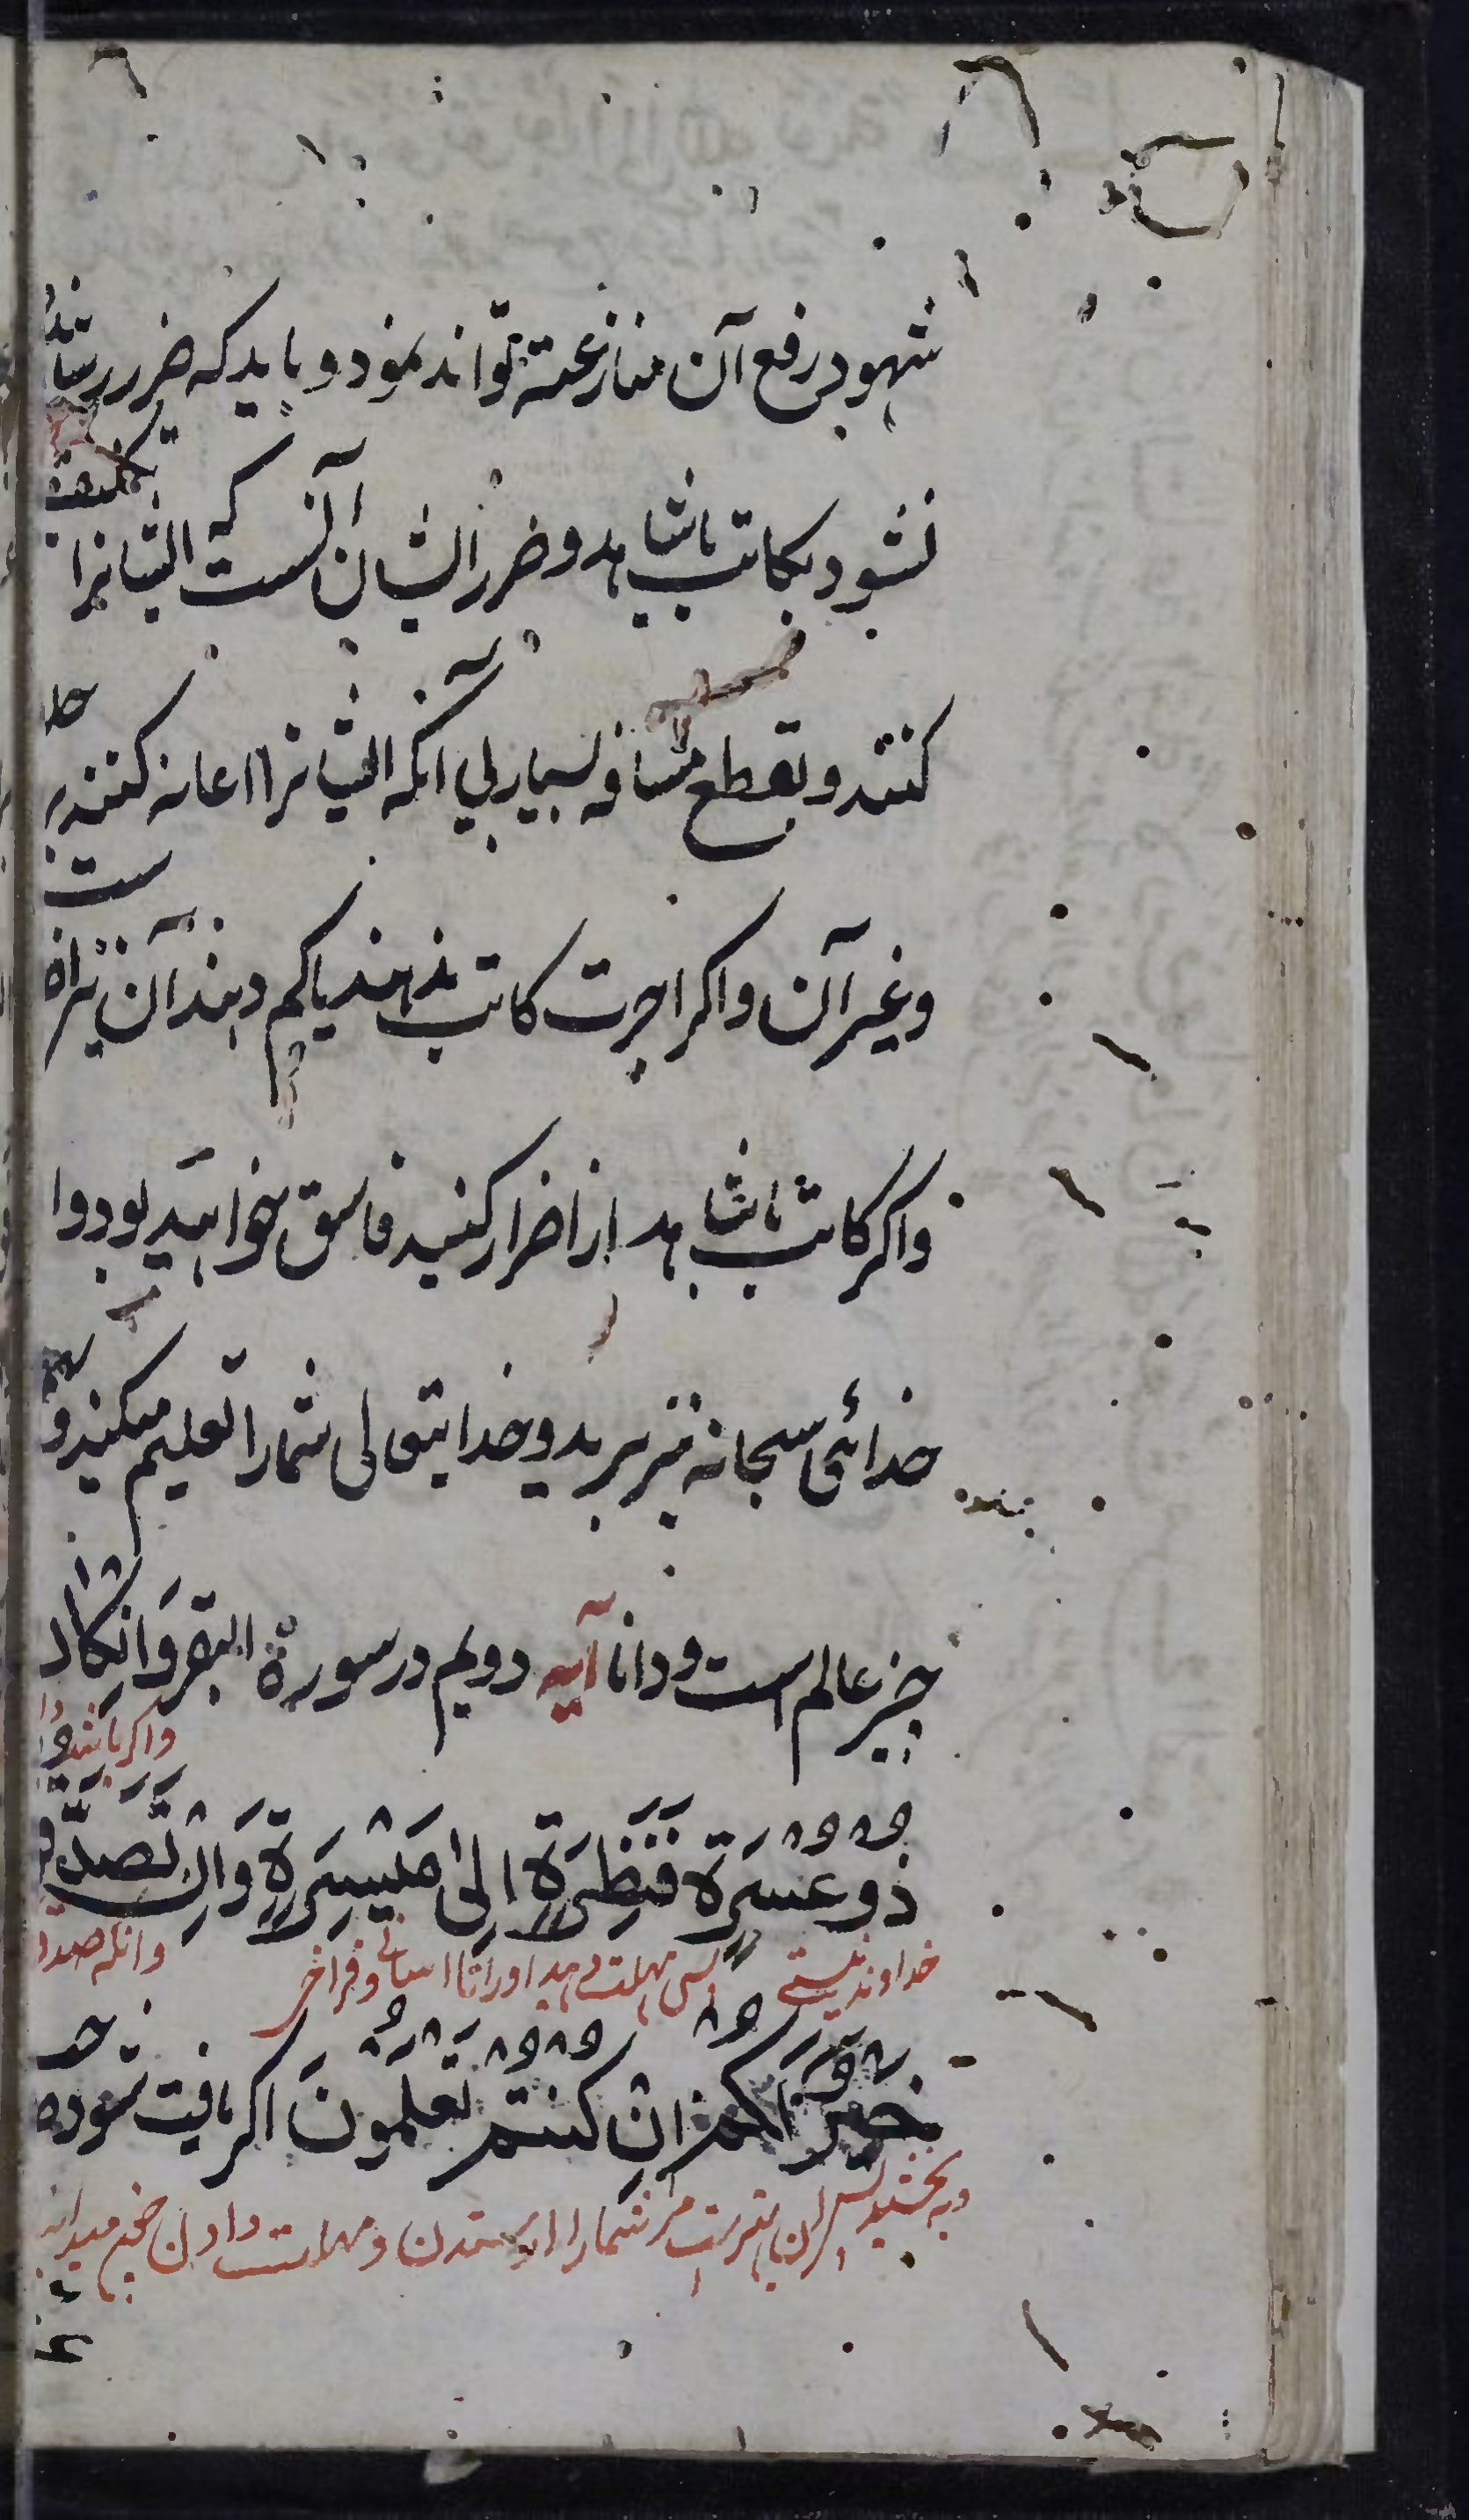 شهود رفع آن منازعت تواند نمود و باید که ضرر رسانیده
نشود بکاتب یا شاهد و ضرر ایشان آنست که ایشانرا تکلیف
کنند و بقطع مسافه بسیار بی آنکه ایشانرا اعانه کنند بر
وغیر آن واکر اجرت کاتب ندهند یا کم دهند آن نیز
واکر کاتب یا شاهد از اضرار کنید فاسق خواهید بود و از
خدائی سبحانه بترسید و خدایتعالی شمارا تعلیم میکند و
چیز عالم است و دانا آیه دویم در سورة البقر وَاِنْ كَانَ
واکر باشد
ذُو عُسْرَةٍ فَنَظِرَةٌ اِلىٰ مَيْسَرَةٍ وَاَنْ تَصَدَّقُوا
خداوند نیستی پس مهلت دهید اورا تا اسانی وفراخی وانکه صدقه
خَيْرٌ لَكُمْ اِنْ كُنْتُمْ تَعْلَمُونَ اکر یافت شود
وبه بخشید بهتر است مر شمارا از ستدن ومهلت دادن